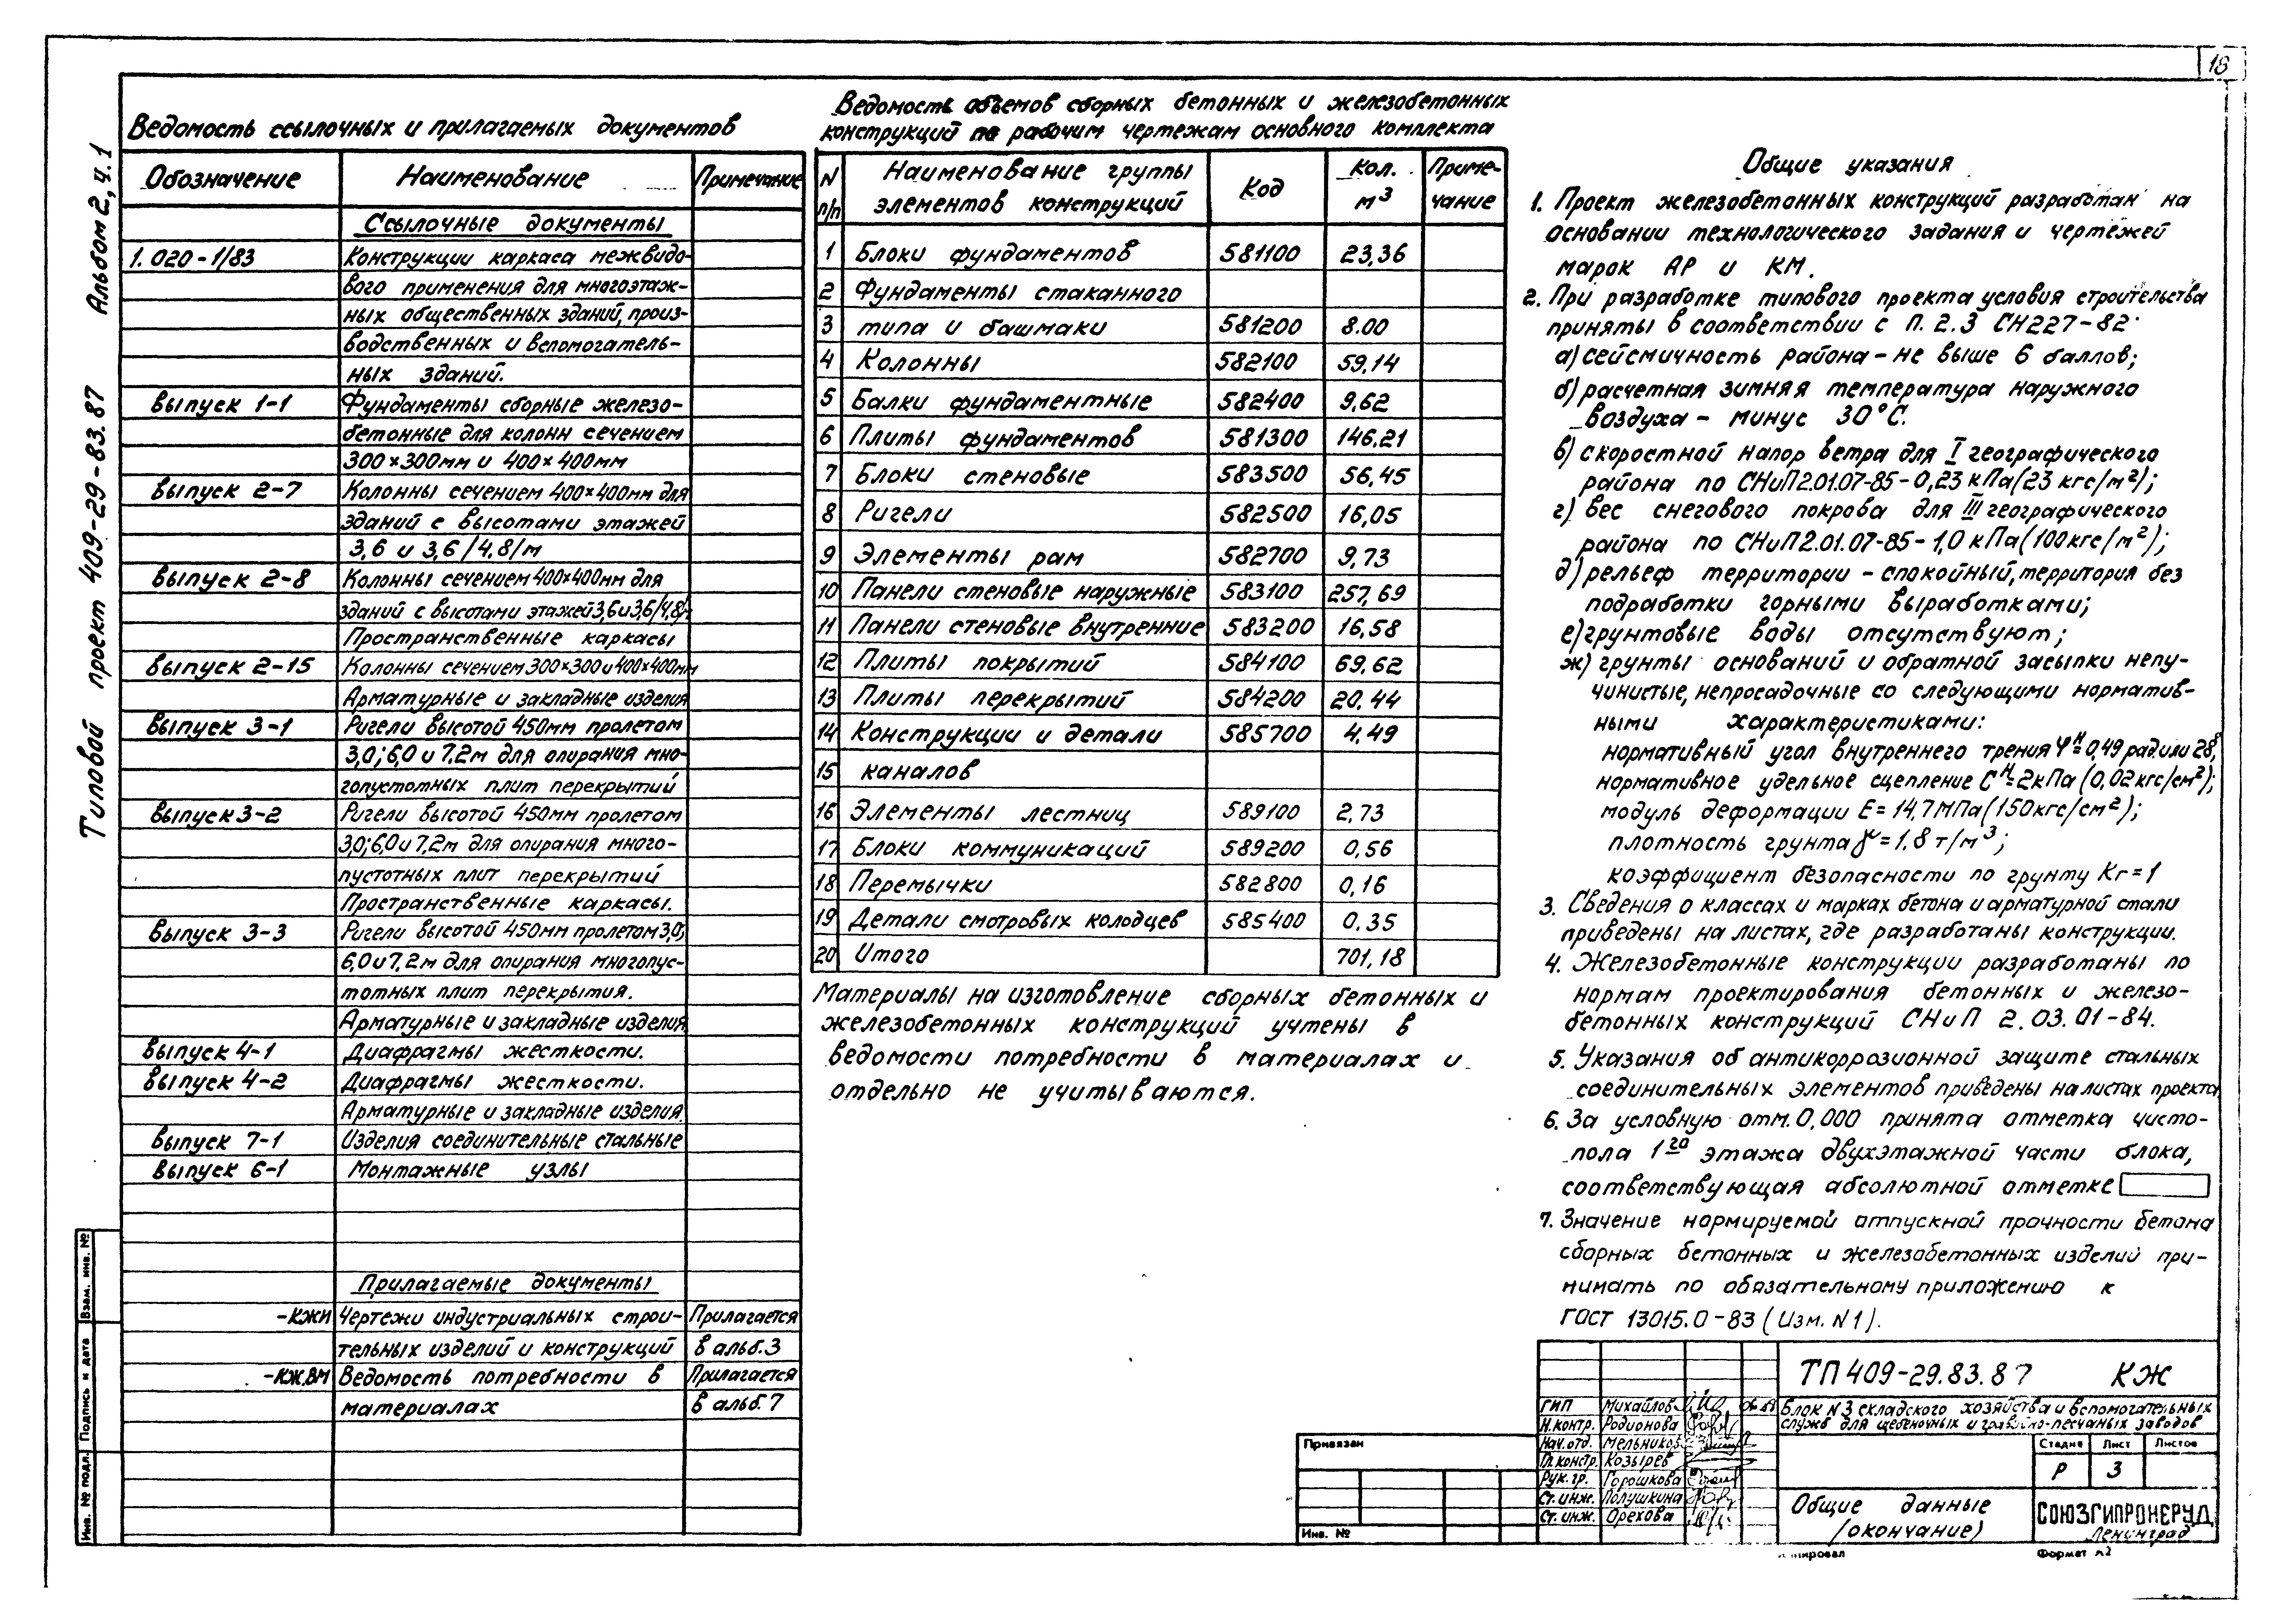 18
Типовой проект 409-29-83.87 Альбом 2, ч.1
Ведомость ссылочных и прилагаемых документов
Обозначение Наименование Примечание
Ссылочные документы
1.020-1/83 Конструкции каркаса межвидо-
вого применения для многоэтаж-
ных общественных зданий, произ-
водственных и вспомогатель-
ных зданий.
выпуск 1-1 Фундаменты сборные железо-
бетонные для колонн сечением
300×300мм и 400×400мм
выпуск 2-7 Колонны сечением 400×400мм для
зданий с высотами этажей
3,6 и 3,6/4,8/м
выпуск 2-8 Колонны сечением 400×400мм для
зданий с высотами этажей 3,6 и 3,6/4,8/м
Пространственные каркасы
выпуск 2-15 Колонны сечением 300×300 и 400×400мм
Арматурные и закладные изделия
выпуск 3-1 Ригели высотой 450мм пролетом
3,0; 6,0 и 7,2м для опирания мно-
гопустотных плит перекрытий
выпуск 3-2 Ригели высотой 450мм пролетом
3,0; 6,0 и 7,2м для опирания много-
пустотных плит перекрытий
Пространственные каркасы.
выпуск 3-3 Ригели высотой 450мм пролетом 3,0;
6,0 и 7,2м для опирания многопус-
тотных плит перекрытия.
Арматурные и закладные изделия
выпуск 4-1 Диафрагмы жесткости.
выпуск 4-2 Диафрагмы жесткости.
Арматурные и закладные изделия.
выпуск 7-1 Изделия соединительные стальные
выпуск 6-1 Монтажные узлы
Прилагаемые документы
-КЖИ Чертежи индустриальных строи- Прилагается
тельных изделий и конструкций в альб.3
-КЖ.ВМ Ведомость потребности в Прилагается
материалах в альб.7
Ведомость объемов сборных бетонных и железобетонных
конструкций по рабочим чертежам основного комплекта
N Наименование группы Код Кол. Приме-
п/п элементов конструкций м³ чание
1 Блоки фундаментов 581100 23,36
2 Фундаменты стаканного
3 типа и башмаки 581200 8.00
4 Колонны 582100 59,14
5 Балки фундаментные 582400 9,62
6 Плиты фундаментов 581300 146,21
7 Блоки стеновые 583500 56,45
8 Ригели 582500 16,05
9 Элементы рам 582700 9,73
10 Панели стеновые наружные 583100 257,69
11 Панели стеновые внутренние 583200 16,58
12 Плиты покрытий 584100 69,62
13 Плиты перекрытий 584200 20,44
14 Конструкции и детали 585700 4,49
15 каналов
16 Элементы лестниц 589100 2,73
17 Блоки коммуникаций 589200 0,56
18 Перемычки 582800 0,16
19 Детали смотровых колодцев 585400 0.35
20 Итого 701,18
Материалы на изготовление сборных бетонных и
железобетонных конструкций учтены в
ведомости потребности в материалах и
отдельно не учитываются.
Общие указания
1. Проект железобетонных конструкций разработан на
основании технологического задания и чертежей
марок АР и КМ.
2. При разработке типового проекта условия строительства
приняты в соответствии с п. 2.3 СН227-82:
а) сейсмичность района – не выше 6 баллов;
б) расчетная зимняя температура наружного
воздуха – минус 30°С.
в) скоростной напор ветра для I географического
района по СНиП2.01.07-85 - 0,23 кПа (23 кгс/м²);
г) вес снегового покрова для III географического
района по СНиП2.01.07-85 - 1,0 кПа (100кгс/м²);
д) рельеф территории – спокойный, территория без
подработки горными выработками;
е) грунтовые воды отсутствуют;
ж) грунты оснований и обратной засыпки непу-
чинистые, непросадочные со следующими норматив-
ными характеристиками:
нормативный угол внутреннего трения φᴴ=0,49 рад или 28°,
нормативное удельное сцепление Cᴴ=2кПа (0,02кгс/см²);
модуль деформации Е=14,7МПа (150кгс/см²);
плотность грунта γ=1,8 т/м³;
коэффициент безопасности по грунту Кг=1
3. Сведения о классах и марках бетона и арматурной стали
приведены на листах, где разработаны конструкции.
4. Железобетонные конструкции разработаны по
нормам проектирования бетонных и железо-
бетонных конструкций СНиП 2.03.01-84.
5. Указания об антикоррозионной защите стальных
соединительных элементов приведены на листах проекта
6. За условную отм. 0,000 принята отметка чисто-
пола 1го этажа двухэтажной части блока,
соответствующая абсолютной отметке
7. Значение нормируемой отпускной прочности бетона
сборных бетонных и железобетонных изделий при-
нимать по обязательному приложению к
ГОСТ 13015.0-83 (Изм. N1).
ТП 409-29.83.87 КЖ
ГИП Михайлов
Н.контр. Родионова
Нач.отд. Мельников
Гл.констр. Козырев
Рук.гр. Горошкова
Ст.инж. Полушкина
Ст.инж. Орехова
Блок N3 складского хозяйства и вспомогательных
служб для щебеночных и гравийно-песчаных заводов
Стадия Лист Листов
Р 3
Общие данные
(окончание)
СОЮЗГИПРОНЕРУД
Ленинград
Привязан
Инв. №
Формат А2
Взам. инв. №
Подпись и дата
Инв. № подл.